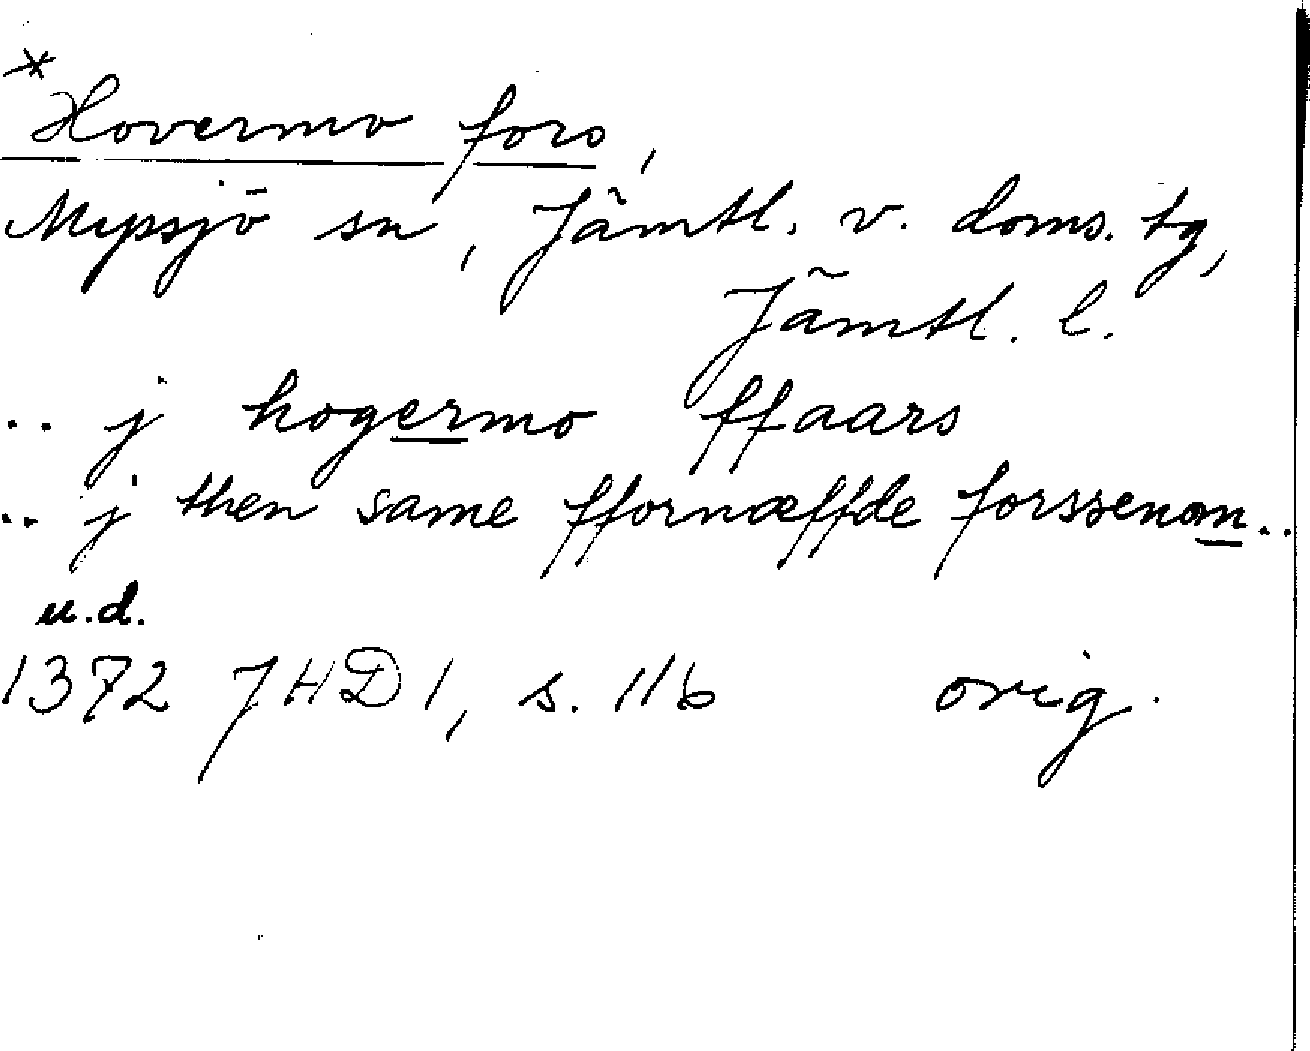 *
Hovermo fors,
Myssjö sn, Jämtl. v. doms. tg,
Jämtl. l.
.. j hogermo ffaars
.. j then same ffornæffde forssenom..
u.d.
1372 JHD 1, s. 116 orig.